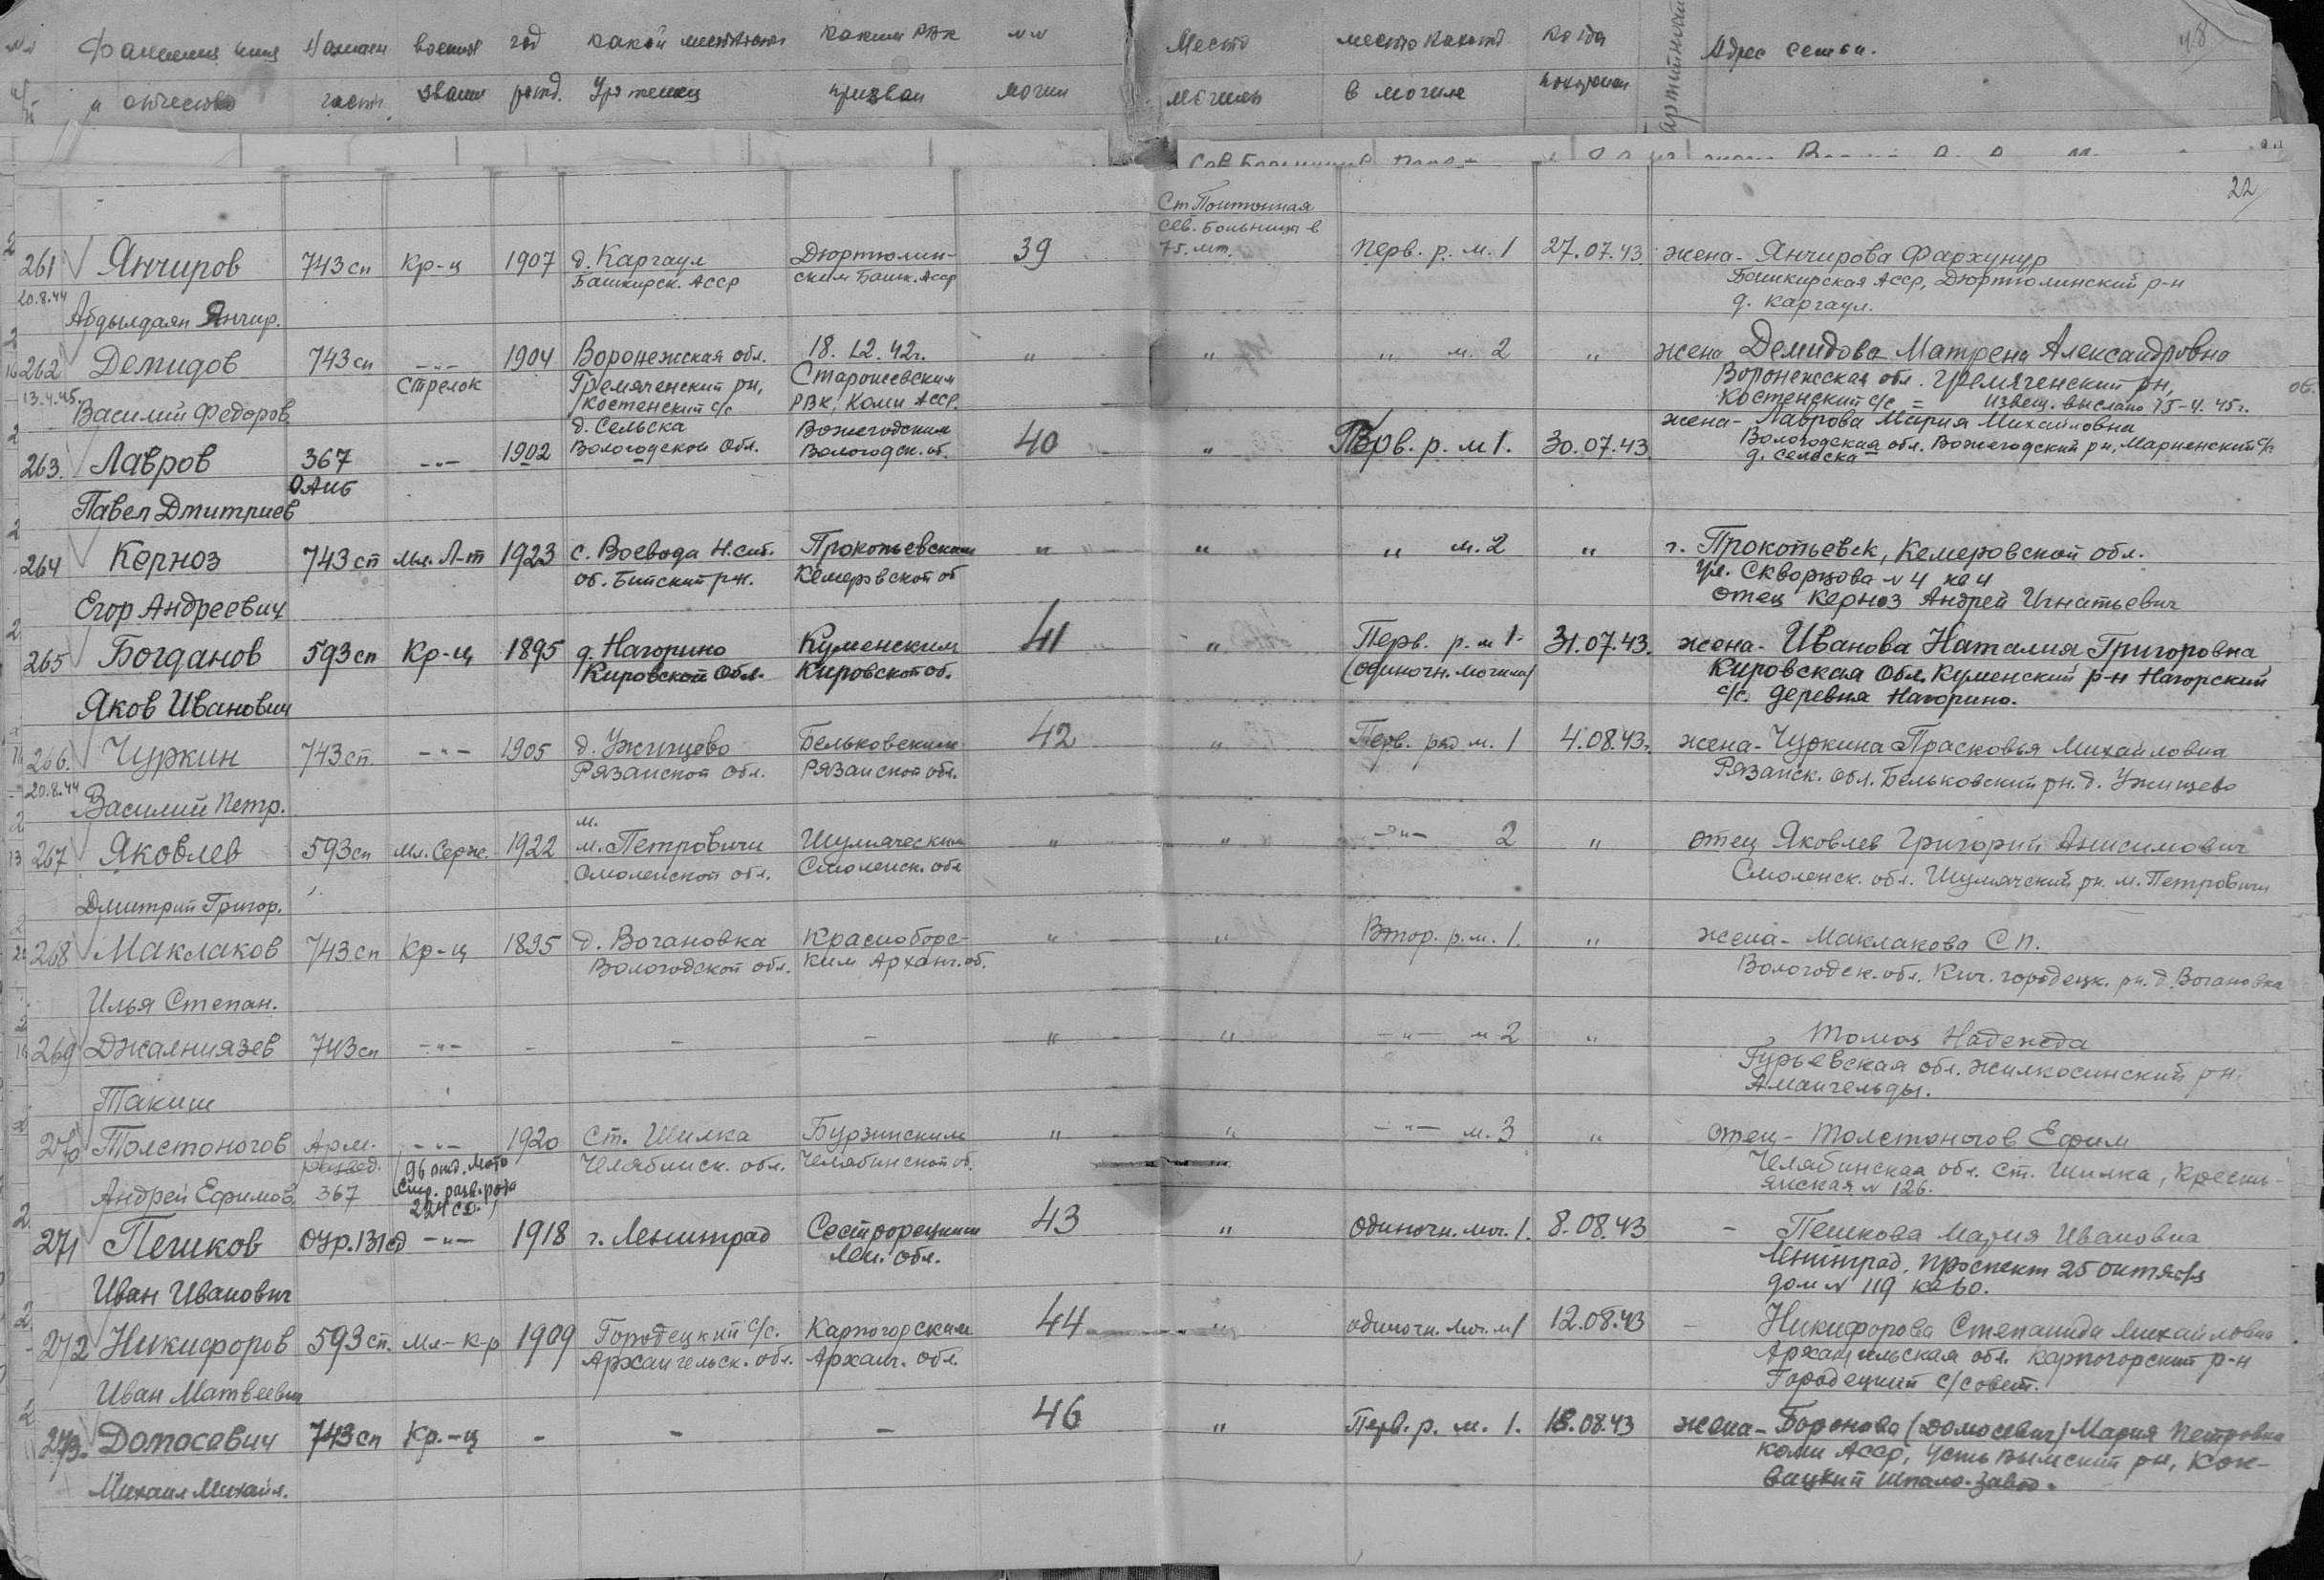 Фамилия имя Наимен воинск год какой местности каким РВК №№ Место место каждого когда Адрес семьи. 48
и отчество части звание рожд. Уроженец призван могил могилы в могиле похоронен
22
Ст Понтонная
сев. больницы в
75. мт.
261 Янчиров 743 сп Кр-ц 1907 д. Каргаул Дюртюлин- 39 перв. р. м. 1 27.07.43. жена - Янчирова Фархунур
Башкирск. Асср ским Башк. Асср Башкирская Асср, Дюртюлинский р-н
20.8.44 д. Каргаул.
Абдылдаян Янчир.
262 Демидов 743 сп -"- 1904 Воронежская обл. 18.12.42г. " " " м. 2 " жена Демидова Матрена Александровна
Стрелок Гремяченский рн, Воронежская обл. Гремяченский рн,
13.4.45. Костенский с/с РВК, Коми Асср. Костенский с/с = извещ. выслано 15-4.45г.
Василий Федоров
д. Сельска Вожегодским жена - Лаврова Мария Михайловна
263. Лавров 367 -"- 1902 Вологодской Обл. Вологодск. об. 40 " Перв. р. м 1. 30.07.43. Вологодская обл. Вожегодский рн, с/с
д. Сельска
Павел Дмитриев
264 Керноз 743 сп мл. Л-т 1923 с. Воевода Н.сиб. Прокопьевским " " " м. 2 " г. Прокопьевск, Кемеровской обл.
об. Бийский р-н. Кемеровской об ул. Скворцова № 4 кв 4
Егор Андреевич отец Керноз Андрей Игнатьевич
265 Богданов 593 сп Кр-ц 1895 д. Нагорино Куменским 41 " Перв. р. м 1. 31.07.43. жена - Иванова Наталия Григоровна
Кировской Обл. Кировской об. (одиночн. могила) Кировская Обл. Куменский р-н Нагорский
Яков Иванович с/с. деревня Нагорино.
266. Чуркин 743 сп -"- 1905 д. Ужищево Бельковским 42 " Перв. ряд м. 1 4.08.43г. жена - Чуркина Прасковья Михайловна
20.8.44 Рязанской обл. Рязанской обл. Рязанск. обл. Бельковский рн. д. Ужищево
Василий Петр.
м.
267 Яковлев 593 сп Мл. Серж. 1922 м. Петровичи Шумяческим " " -"- 2 " отец Яковлев Григорий Анисимович
Смоленской обл. Смоленск. обл Смоленск. обл. Шумячский рн. м. Петровичи
Дмитрий Григор.
268 Маклаков 743 сп Кр-ц 1895 д. Вогановка Красноборс- " " Втор. р. м. 1. " жена - Маклакова С П.
Вологодской обл. ким Арханг. об. Вологодск. обл. Кич. городецк. рн. д. Вогановка
Илья Степан.
269 Джалниязев 743 сп -"- - - - " " -"- м 2 " Томаз Надежда
Гурьевская обл. Жилкосинский рн.
Такиш Амангельды.
270 Толстоногов Арм. -"- 1920 ст. Шилка Бурзинским " " -"- м. 3 " отец - Толстоногов Ефим
развед. 96 отд. мото Челябинск. обл. Челябинской об. Челябинская обл. ст. Шилка, Крестья-
Андрей Ефимов. 367 стр. разв. рота янская № 126.
224 сд.
271 Пешков ОУр. 131сд -"- 1918 г. Ленинград Сестрорецким 43 " одиночн. мог. 1. 8.08.43 - Пешкова Мария Ивановна
Лен. обл. Ленинград, проспект 25 октября
Иван Иванович дом № 119 кв 60.
272 Никифоров 593 сп. Мл-к-р 1909 Городецкий с/с. Карпогорским 44 " одиночн. мог. м 1 12.08.43 - Никифорова Степанида Михайловна
Архангельск. обл. Арханг. обл. Архангельская обл. Карпогорский р-н
Иван Матвеевич Городецкий с/совет.
273. Домосевич 743 сп Кр.-ц - - - 46 " Перв. р. м. 1. 18.08.43 жена - Боронова (Домосевич) Мария Петровна
Коми Асср, Усть Вымский рн, Кож-
Михаил Михайл. вицкий шпало-завод.